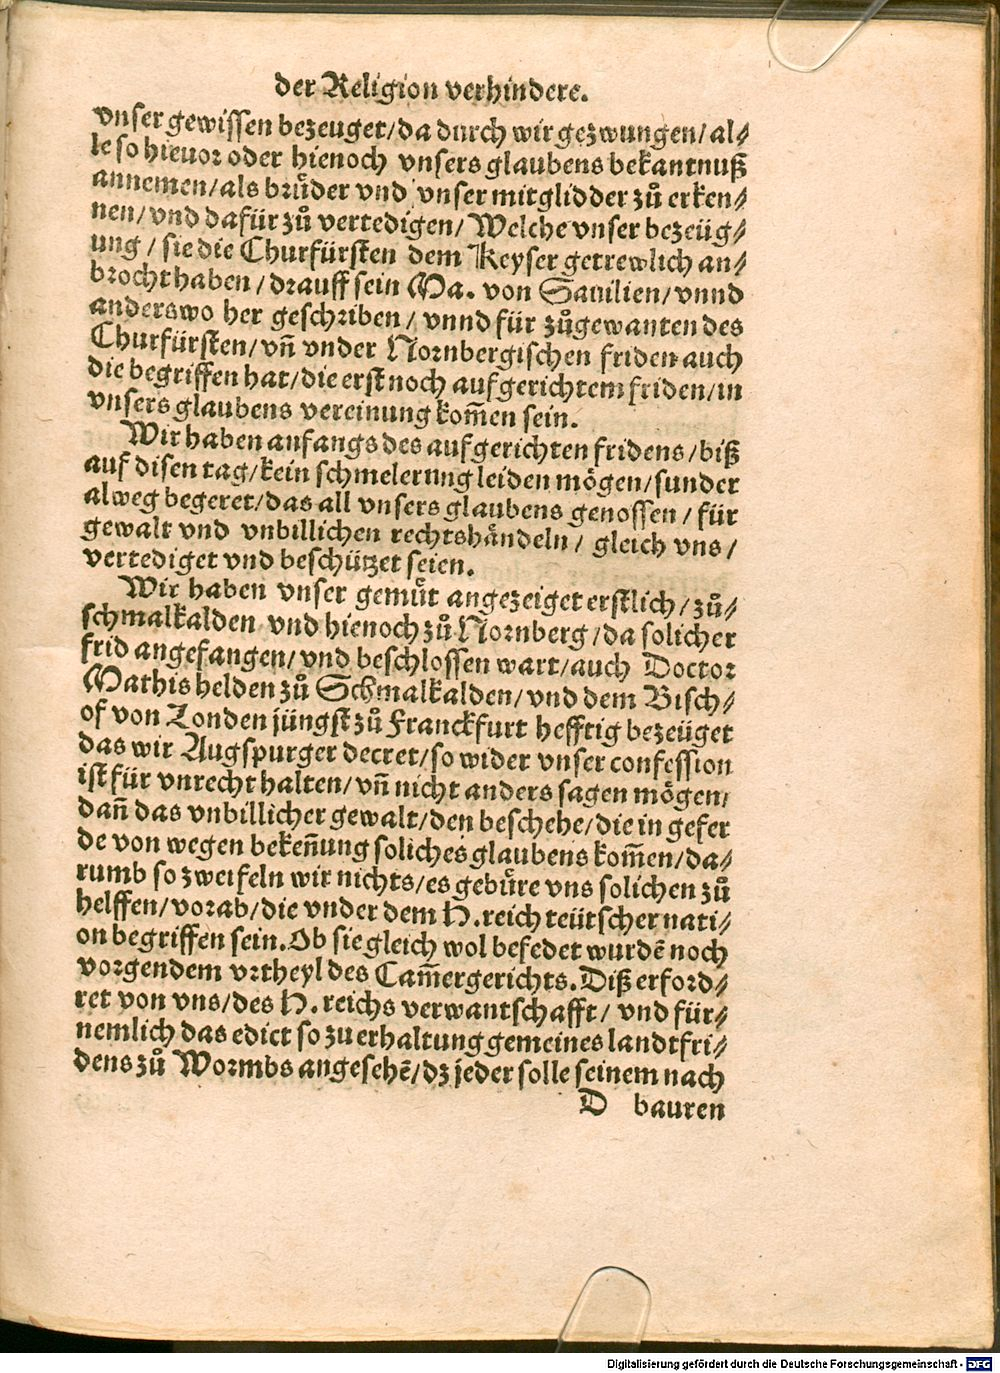 der Religion verhindere.
vnser gewissen bezeuget/da durch wir gezwungen/al⸗
le so hieuor oder hienoch vnsers glaubens bekantnuß
annemen/als bruͤder vnd vnser mitglidder zuͦ erken⸗
nen/vnd dafür zuͦ vertedigen/Welche vnser bezeüg⸗
ung/sie die Churfürsten dem Keyser getrewlich an⸗
brocht haben/drauff sein Ma. von Sauilien/vnnd
anderswo her geschriben/vnnd für zuͦgewanten des
Churfürsten/vn̄ vnder Nornbergischen friden auch
die begriffen hat/die erst noch aufgerichtem friden/in
vnsers glaubens vereinung kom̄en sein.
Wir haben anfangs des aufgerichten fridens/biß
auf disen tag/kein schmelerung leiden mögen/sunder
alweg begeret/das all vnsers glaubens genossen/für
gewalt vnd vnbillichen rechtshändeln/gleich vns/
vertediget vnd beschützet seien.
Wir haben vnser gemuͤt angezeiget erstlich/zuͦ⸗
schmalkalden vnd hienoch zuͦ Nornberg/da solicher
frid angefangen/vnd beschlossen wart/auch Doctor
Mathis helden zuͦ Schmalkalden/vnd dem Bisch⸗
of von Londen jüngst zuͦ Franckfurt hefftig bezeüget
das wir Augspurger decret/so wider vnser confession
ist für vnrecht halten/vn̄ nicht anders sagen mögen/
dan̄ das vnbillicher gewalt/den beschehe/die in gefer
de von wegen beken̄ung soliches glaubens kom̄en/da⸗
rumb so zweifeln wir nichts/es gebuͤre vns solichen zuͦ
helffen/vorab/die vnder dem H. reich teütscher nati⸗
on begriffen sein. Ob sie gleich wol befedet wurdē noch
vorgendem vrtheyl des Cam̄ergerichts. Diß erford⸗
ret von vns/des H. reichs verwantschafft/vnd für⸗
nemlich das edict so zu erhaltung gemeines landtfri⸗
dens zuͦ Wormbs angesehē/dz jeder solle seinem nach
D bauren
Digitalisierung gefördert durch die Deutsche Forschungsgemeinschaft - DFG